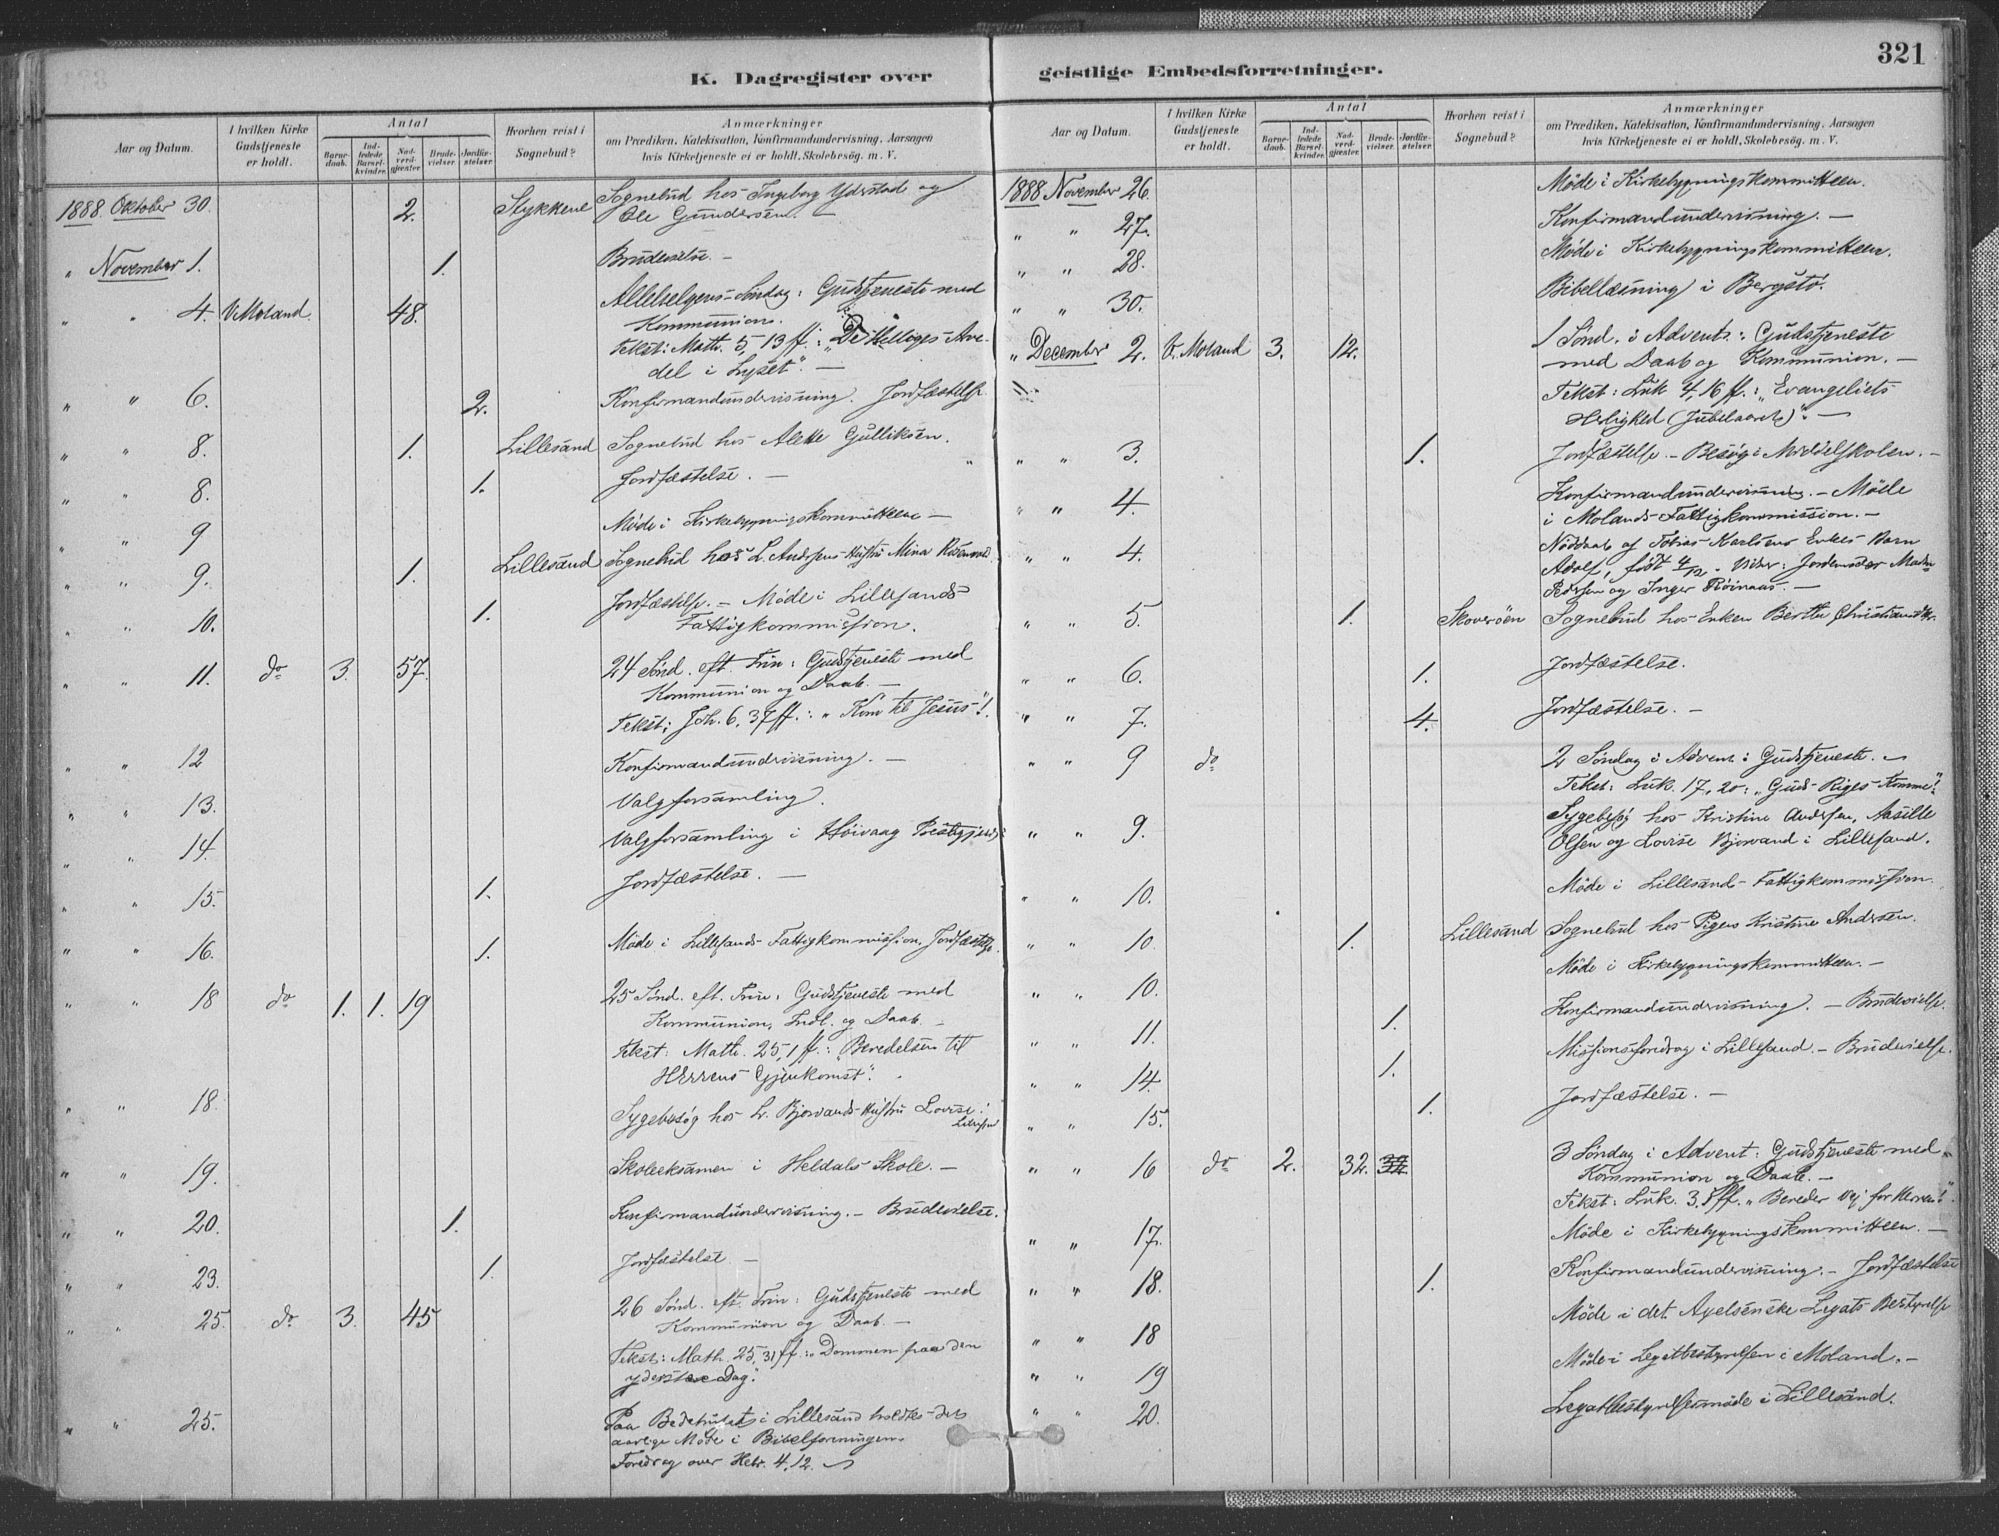 321
K. Dagregister over geistlige Embedsforretninger.
Aar og Datum.
I hvilken Kirke Gudstjeneste er holdt.
Antal
Barnedaab.
Indledede Barselkvinder.
Nadverdgjæster.
Brudevielser.
Jordfæstelser.
Hvorhen reist i Sognebud?
Anmærkninger
om Prædiken, Katekisation, Konfirmandundervisning, Aarsagen
hvis Kirketjeneste ei er holdt, Skolebesøg. m. V.
1888 Oktober 30. 2. Stykkene Sognebud hos Ingeborg Yderstad og
Ole Gundersen. —
" November 1. 1. Brudevielse. —
" " 4. V. Moland. 48. Allehelgens-Søndag: Gudstjeneste med
Kommunion.
Tekst: Math. 5,13 ff.: "De Helliges Arve-
del i Lyset". —
" " 6. 2. Konfirmandundervisning. Jordfæstelse.
" " 8. 1. Lillesand Sognebud hos Alette Gulliksen.
" " 8. 1. Jordfæstelse. —
" " 9 Møde i Kirkebygningskommitteen —
" " 9. 1. Lillesand Sognebud hos L. Andersens Hustru Mina
" " 10. 1. Jordfæstelse. — Møde i Lillesands
Fattigkommission.
" " 11. do 3. 57. 24 Sønd. eft. Trin: Gudstjeneste med
Kommunion og Daab. —
Tekst: Joh. 6,37 ff.: "Kom til Jesus"!
" " 12 Konfirmandundervisning. —
" " 13. Valgforsamling.
" " 14. Valgforsamling i Høivaag
" " 15. 1. Jordfæstelse. —
" " 16. 1. Møde i Lillesands Fattigkommission, Jordfæstelse.
" " 18 do 1. 1. 19 25 Sønd. eft. Trin: Gudstjeneste med
Kommunion, Indl. og Daab. —
Tekst: Math. 25,1 ff.: "Beredelsen til
Herrens Gjenkomst".
" " 18. Sygebesøg hos L. Bjorvands Hustru Lovise i
" " 19. Skoleeksamen i Heldals Skole. —
" " 20. 1. Konfirmandundervisning. — Brudevielse.
" " 23. 1. Jordfæstelse —
" " 25. do 3. 45 26 Sønd. eft. Trin: Gudstjeneste med
Kommunion og Daab. —
Tekst: Math. 25,31 ff.: "Dommen paa den
yderste Dag".
" " 25. Paa Bedehuset i Lillesand holdtes det
aarlige Møde i Bibelforeningen.
Foredrag over Hebr. 4,12.
Aar og Datum.
I hvilken Kirke Gudstjeneste er holdt.
Antal
Barnedaab.
Indledede Barselkvinder.
Nadverdgjæster.
Brudevielser.
Jordfæstelser.
Hvorhen reist i Sognebud?
Anmærkninger
om Prædiken, Katekisation, Konfirmandundervisning, Aarsagen
hvis Kirketjeneste ei er holdt, Skolebesøg. m. V.
1888 November 26. Møde i Kirkebygningskommitteen.
" " 27. Konfirmandundervisning. —
" " 28. Møde i Kirkebygningskommitteen.
" " 30. Bibellæsning i Bergstø.
" December 2. V. Moland 3. 12. 1 Sønd. i Advent: Gudstjeneste
med Daab og Kommunion. —
Tekst: Luk. 4,16 ff.: "Evangeliets
Herlighed (Jubelaaret)". —
" " 3. 1. Jordfæstelse. — Besøg i Middelskolen. —
" " 4. Konfirmandundervisning. — Møde
i Molands Fattigkommission. —
" " 4. Nøddaab og Tobias Karlsens Enkes Barn
Adolf, født 4/12. Vidner: Jordemoder Madm
og Inger Røinaas. —
" " 5. 1. Skoverøen Sognebud hos Enken Berthe
" " 6. 1. Jordfæstelse.
" " 7. 4. Jordfæstelse. —
" " 9 do 2 Søndag i Advent: Gudstjeneste.
Tekst: Luk. 17,20: "Guds Riges Komme".
" " 9. Sygebesøg hos Kristine Andersen, Aasille
Olsen og Lovise Bjorvand i Lillesand.
" " 10. Møde i Lillesand Fattigkommission.
" " 10. 1. Lillesand Sognebud hos Pigen Kristine Andersen.
" " 10. Møde i Kirkebygningskommitteen. —
" " 11. 1. Konfirmandundervisning. — Brudevielse.
" " 14. 1. Missionsforedrag i Lillesand. — Brudevielse.
" " 15. 1. Jordfæstelse. —
" " 16 do 2. 32. 32 3 Søndag i Advent: Gudstjeneste med
Kommunion og Daab. —
Tekst: Luk. 3,1 ff. "Bereder Vej for Herren!"
" " 17. Møde i Kirkebygningskommitteen. —
" " 18. 1. Konfirmandundervisning. — Jordfæstelse
" " 18 Møde i det Axelsenske Legats Bestyrelse
" " 19 Møde i Legatbestyrelsen i Moland. —
" " 20. Legatbestyrelsesmøde i Lillesand.